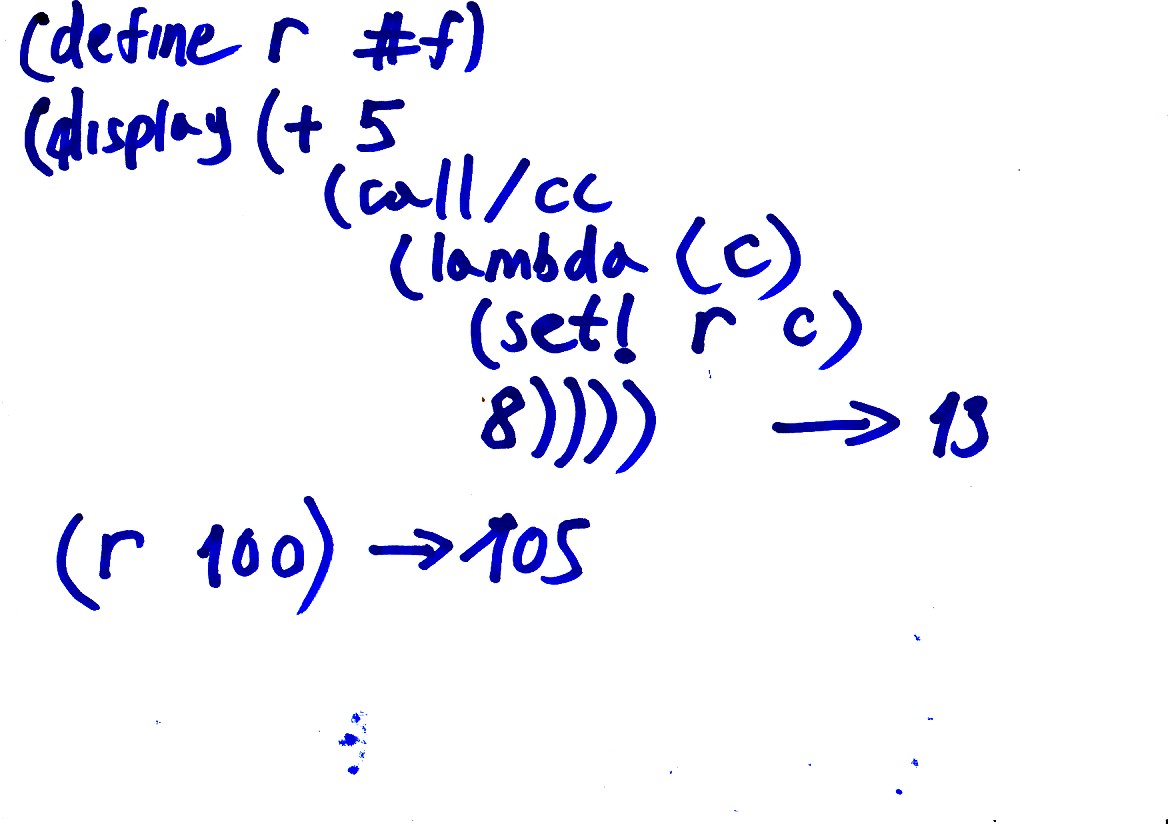 (define r #f)
(display (+ 5
(call/cc
(lambda (c)
(set! r c)
8)))) → 13
(r 100) → 105